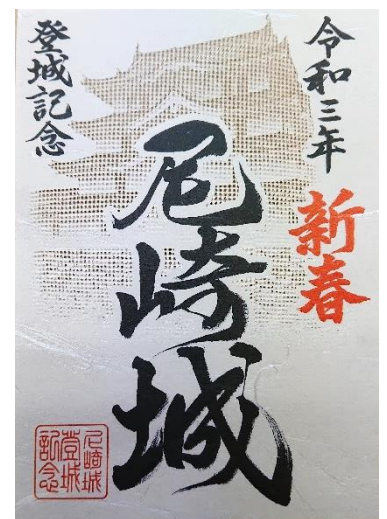 令和三年
新春
尼崎城
登城記念
尼崎城
登城
記念